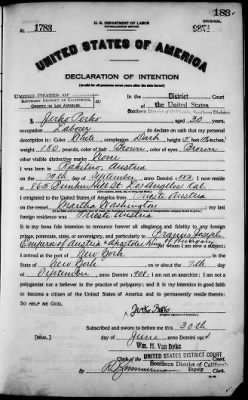 183
U. S. DEPARTMENT OF LABOR
NATURALIZATION SERVICE
ORIGINAL
No. 1783
UNITED STATES OF AMERICA
DECLARATION OF INTENTION
(Invalid for all purposes seven years after the date hereof)
UNITED STATES OF
SOUTHERN DISTRICT OF CALIFORNIA,
COUNTY OF LOS ANGELES
In the District Court
of the United States
Southern District of California Southern Division
I, Jerko Perko, aged 30 years,
occupation Laborer, do declare on oath that my personal
description is: Color White, complexion Dark, height 5 feet inches,
weight 180 pounds, color of hair Brown, color of eyes Brown
other visible distinctive marks None
I was born in Rakitno, Austria
on the day of, anno Domini 1; I now reside
at 865 Bunker Hill St Los Angeles Cal.
I emigrated to the United States of America from Trieste Austria
on the vessel Martha Washington; my last
foreign residence was Austria
It is my bona fide intention to renounce forever all allegiance and fidelity to any foreign
prince, potentate, state, or sovereignty, and particularly to Francis Joseph
Emperor of Austria & Apostolic King of Hungary
I arrived at the port of New York, in the
State of New York, on or about the 7th day
of September, anno Domini 190; I am not an anarchist; I am not a
polygamist nor a believer in the practice of polygamy; and it is my intention in good faith
to become a citizen of the United States of America and to permanently reside therein:
SO HELP ME GOD.
Subscribed and sworn to before me this 30th
[SEAL.] day of June, anno Domini 191
Wm. M. Van Dyke
Clerk of the UNITED STATES DISTRICT COURT
Southern District of California
By Deputy Clerk